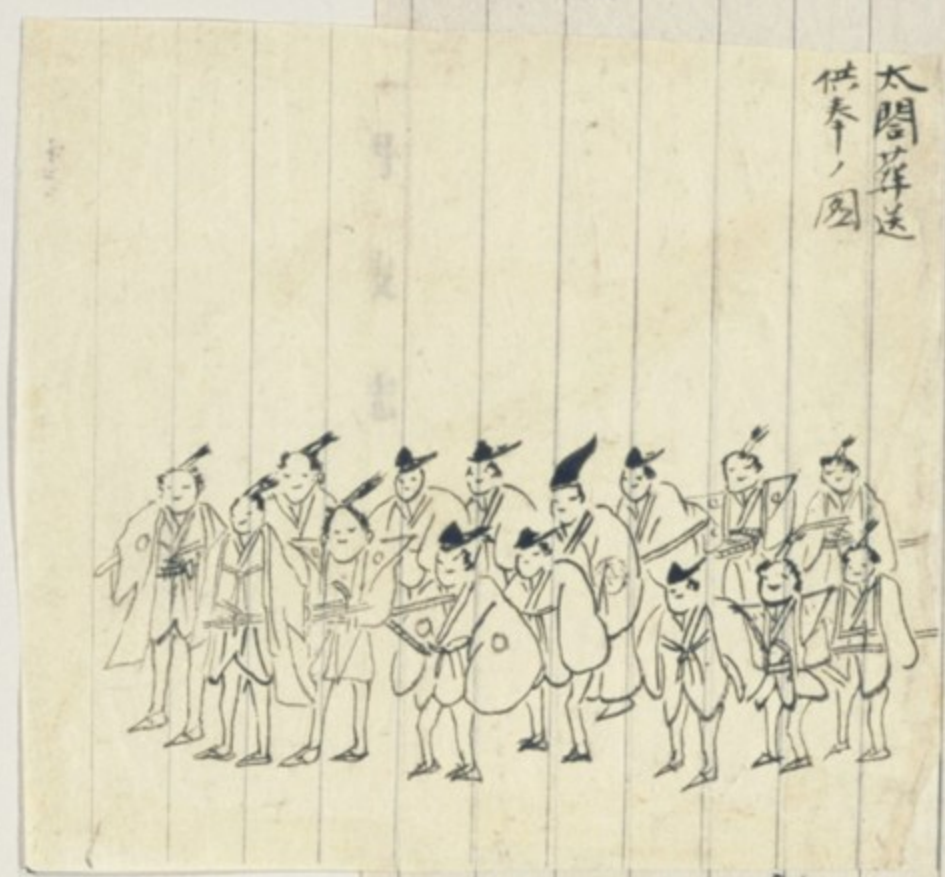 太閤葬送
供奉ノ図